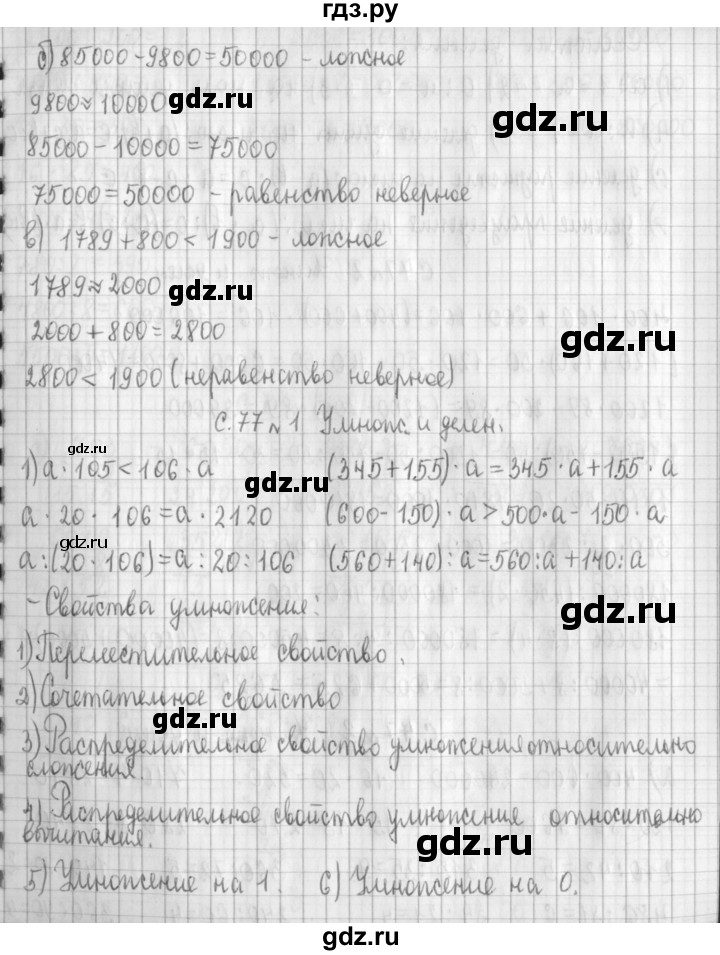 гдз.ру
б) 85000-9800=50000 - ложное
9800≈10000 gdz.ru
gdz.ru
85000-10000=75000
75000=50000 - равенство неверное
в) 1789+800<1900 - ложное
1789≈2000 gdz.ru
2000+800=2800
gdz.ru
2800<1900 (неравенство неверное)
с. 77 №1 Умнож. и делен.
gdz.ru
1) а·105<106·а (345+155)·а=345·а+155·а
gdz.ru
а·20·106=а·2120 (600-150)·а>500·а-150·а
gdz.ru
а:(20·106)=а:20:106 (560+140):а=560:а+140:а
- Свойства умножения:
gdz.ru
1) Переместительное свойство.
2) Сочетательное свойство
gdz.ru
3) Распределительное свойство умножения относительно
сложения.
4) Распределительное свойство умножения относительно
вычитания.
gdz.ru
5) Умножение на 1. 6) Умножение на 0.
gdz.ru